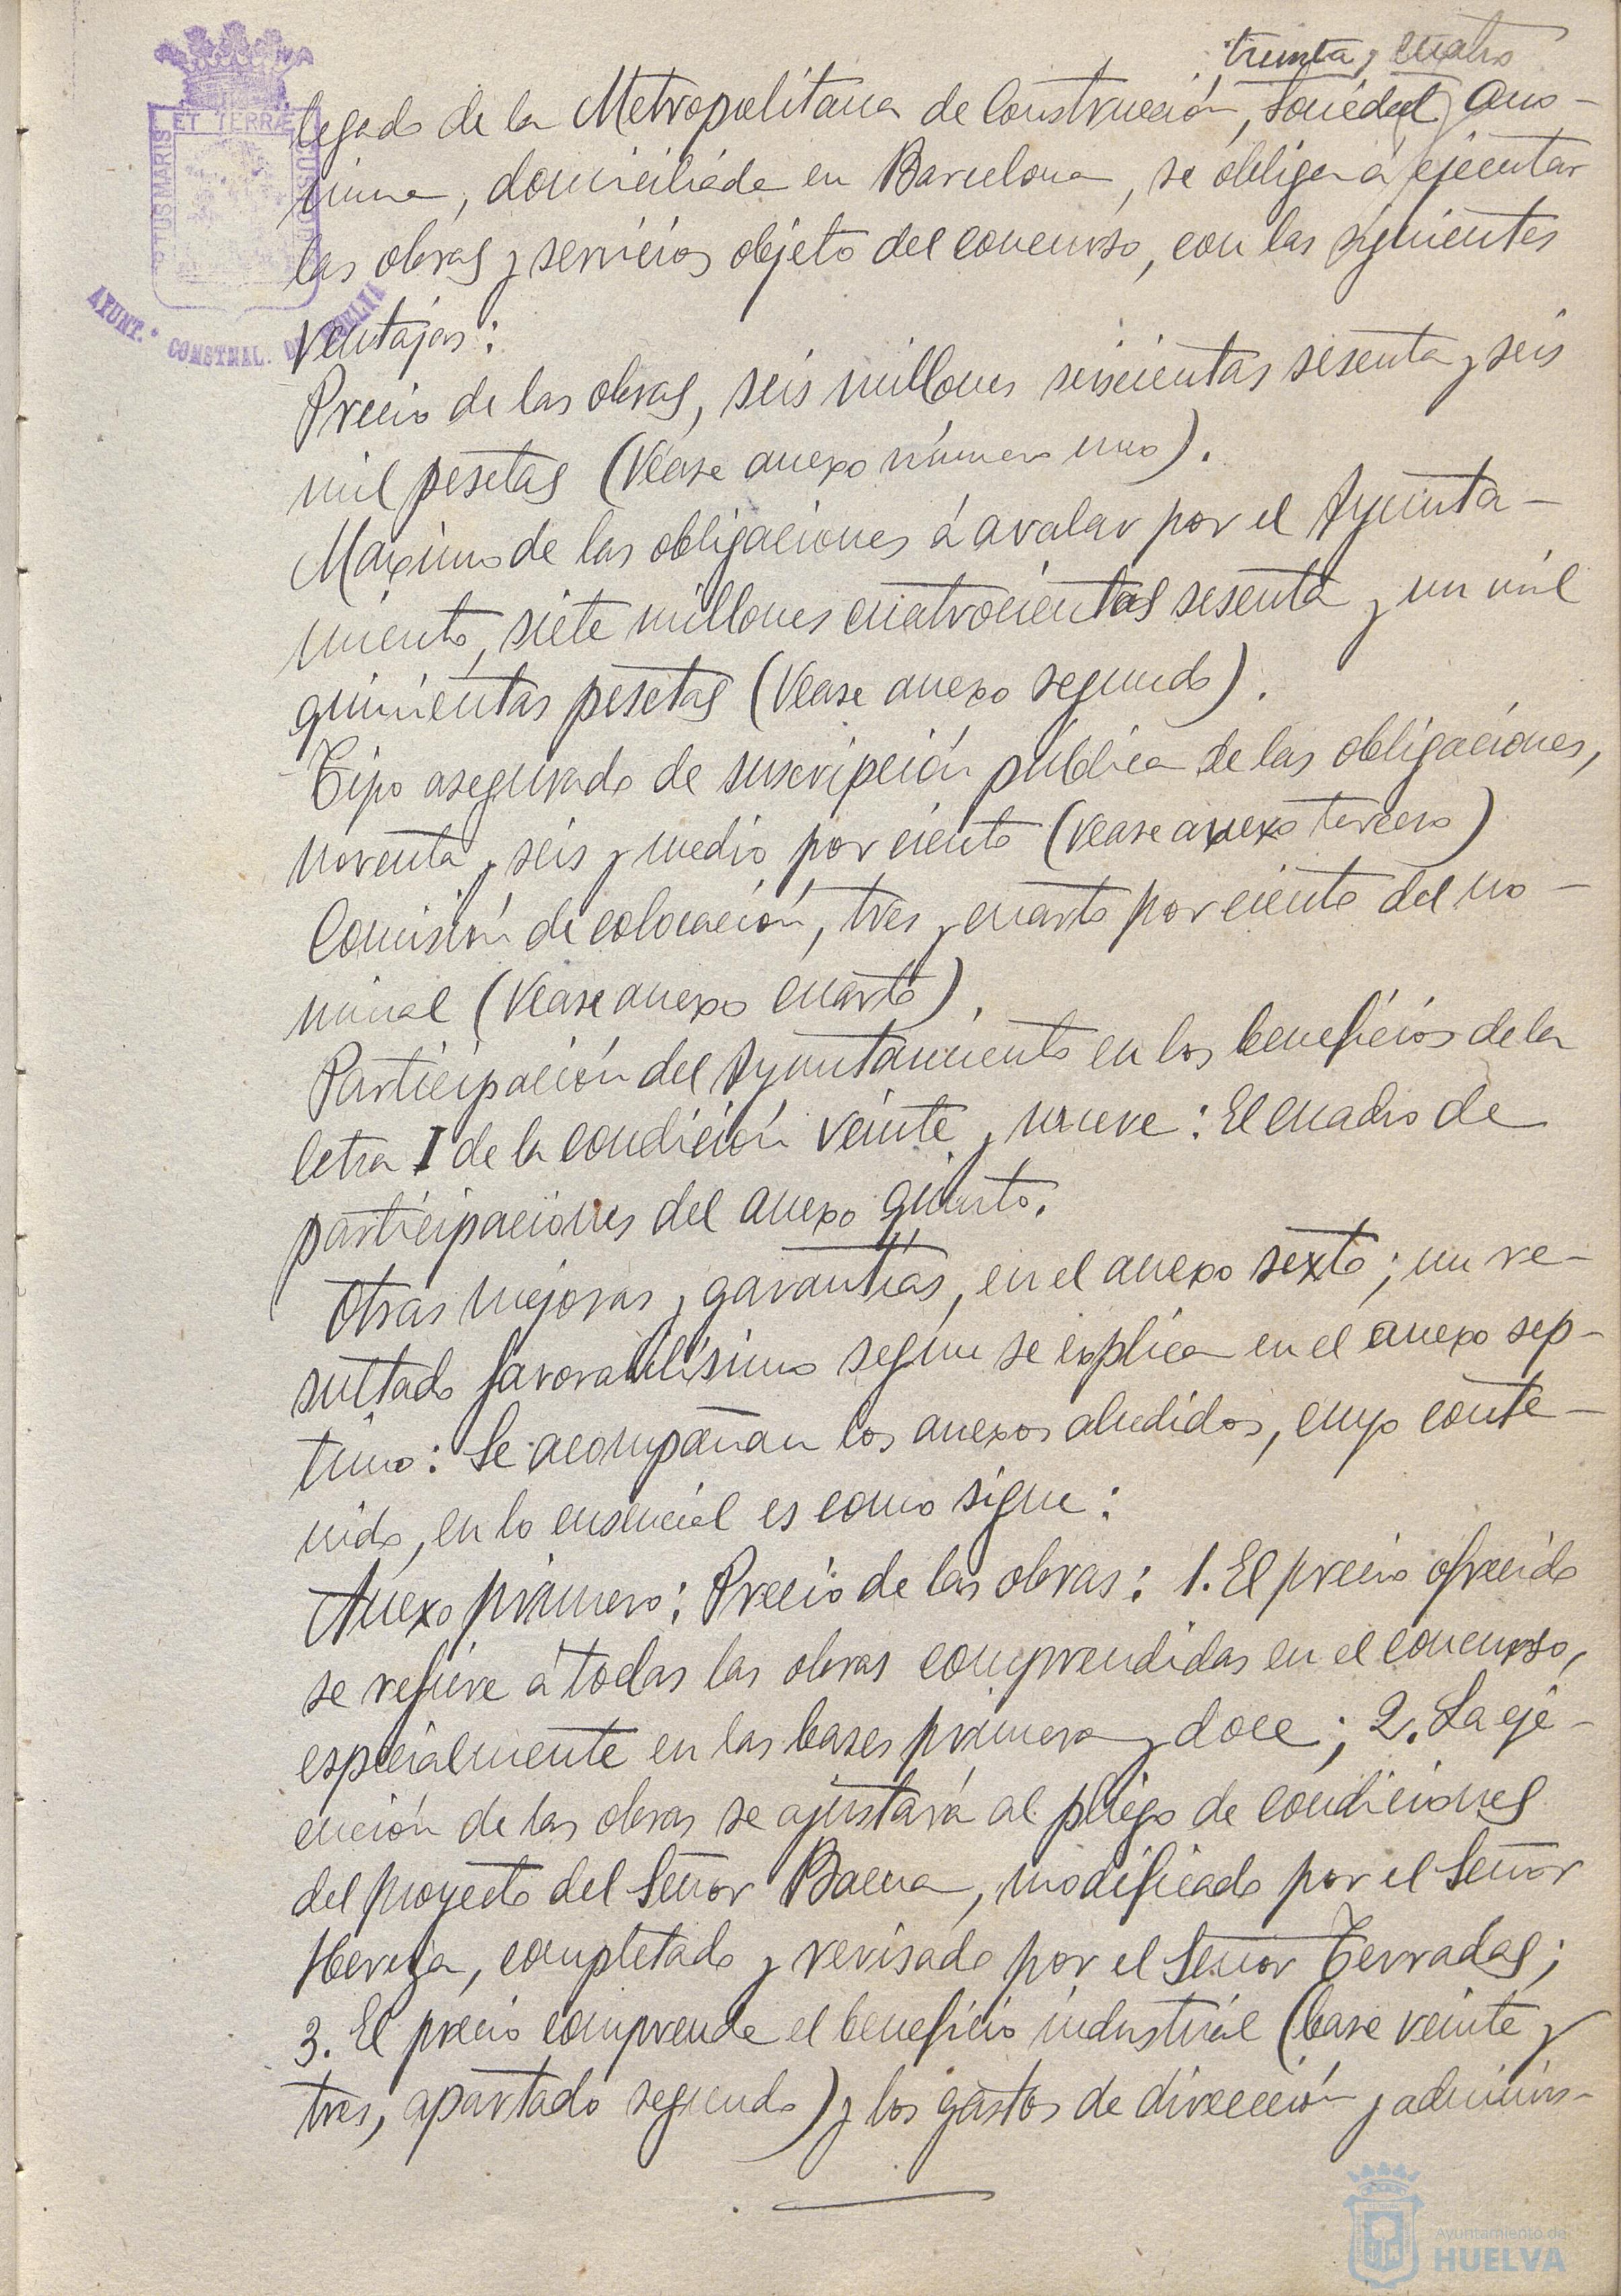 treinta y cuatro
legado de la Metropolitana de Construcción, Sociedad Anó-
nima, domiciliada en Barcelona, se obliga á ejecutar
las obras y servicios objeto del concurso, con las siguientes
ventajas:
Precio de las obras, seis millones seiscientas sesenta y seis
mil pesetas (Véase anexo número uno).
Maximo de las obligaciones á avalar por el Ayunta-
miento, siete millones cuatrocientas sesenta y un mil
quinientas pesetas (Vease anexo segundo).
Tipo asegurado de suscripción pública de las obligaciones,
noventa y seis y medio por ciento (vease anexo tercero)
Comisión de colocación, tres y cuarto por ciento del no-
minal (Vease anexo cuarto).
Participación del Ayuntamiento en los beneficios de la
letra I de la condición veinte y nueve: El cuadro de
participaciones del anexo quinto.
Otras mejoras y garantías, en el anexo sexto; un re-
sultado favorabilísimo según se explica en el anexo sep-
timo: Se acompañan los anexos aludidos, cuyo conte-
nido, en lo es como sigue:
Anexo primero: Precio de las obras: 1. El precio ofrecido
se refiere á todas las obras comprendidas en el concurso,
especialmente en las bases primera y doce; 2. La eje-
cución de las obras se ajustará al pliego de condiciones
del proyecto del Señor Baena, modificado por el Señor
completado y revisado por el Señor Terradas;
3. El precio comprende el beneficio industrial (base veinte y
tres, apartado segundo) y los gastos de dirección y adminis-
ET TERRÆ
PORTUS MARIS
CUSTODIA
AYUNT.º CONSTNAL. DE HUELVA
Ayuntamiento de
HUELVA